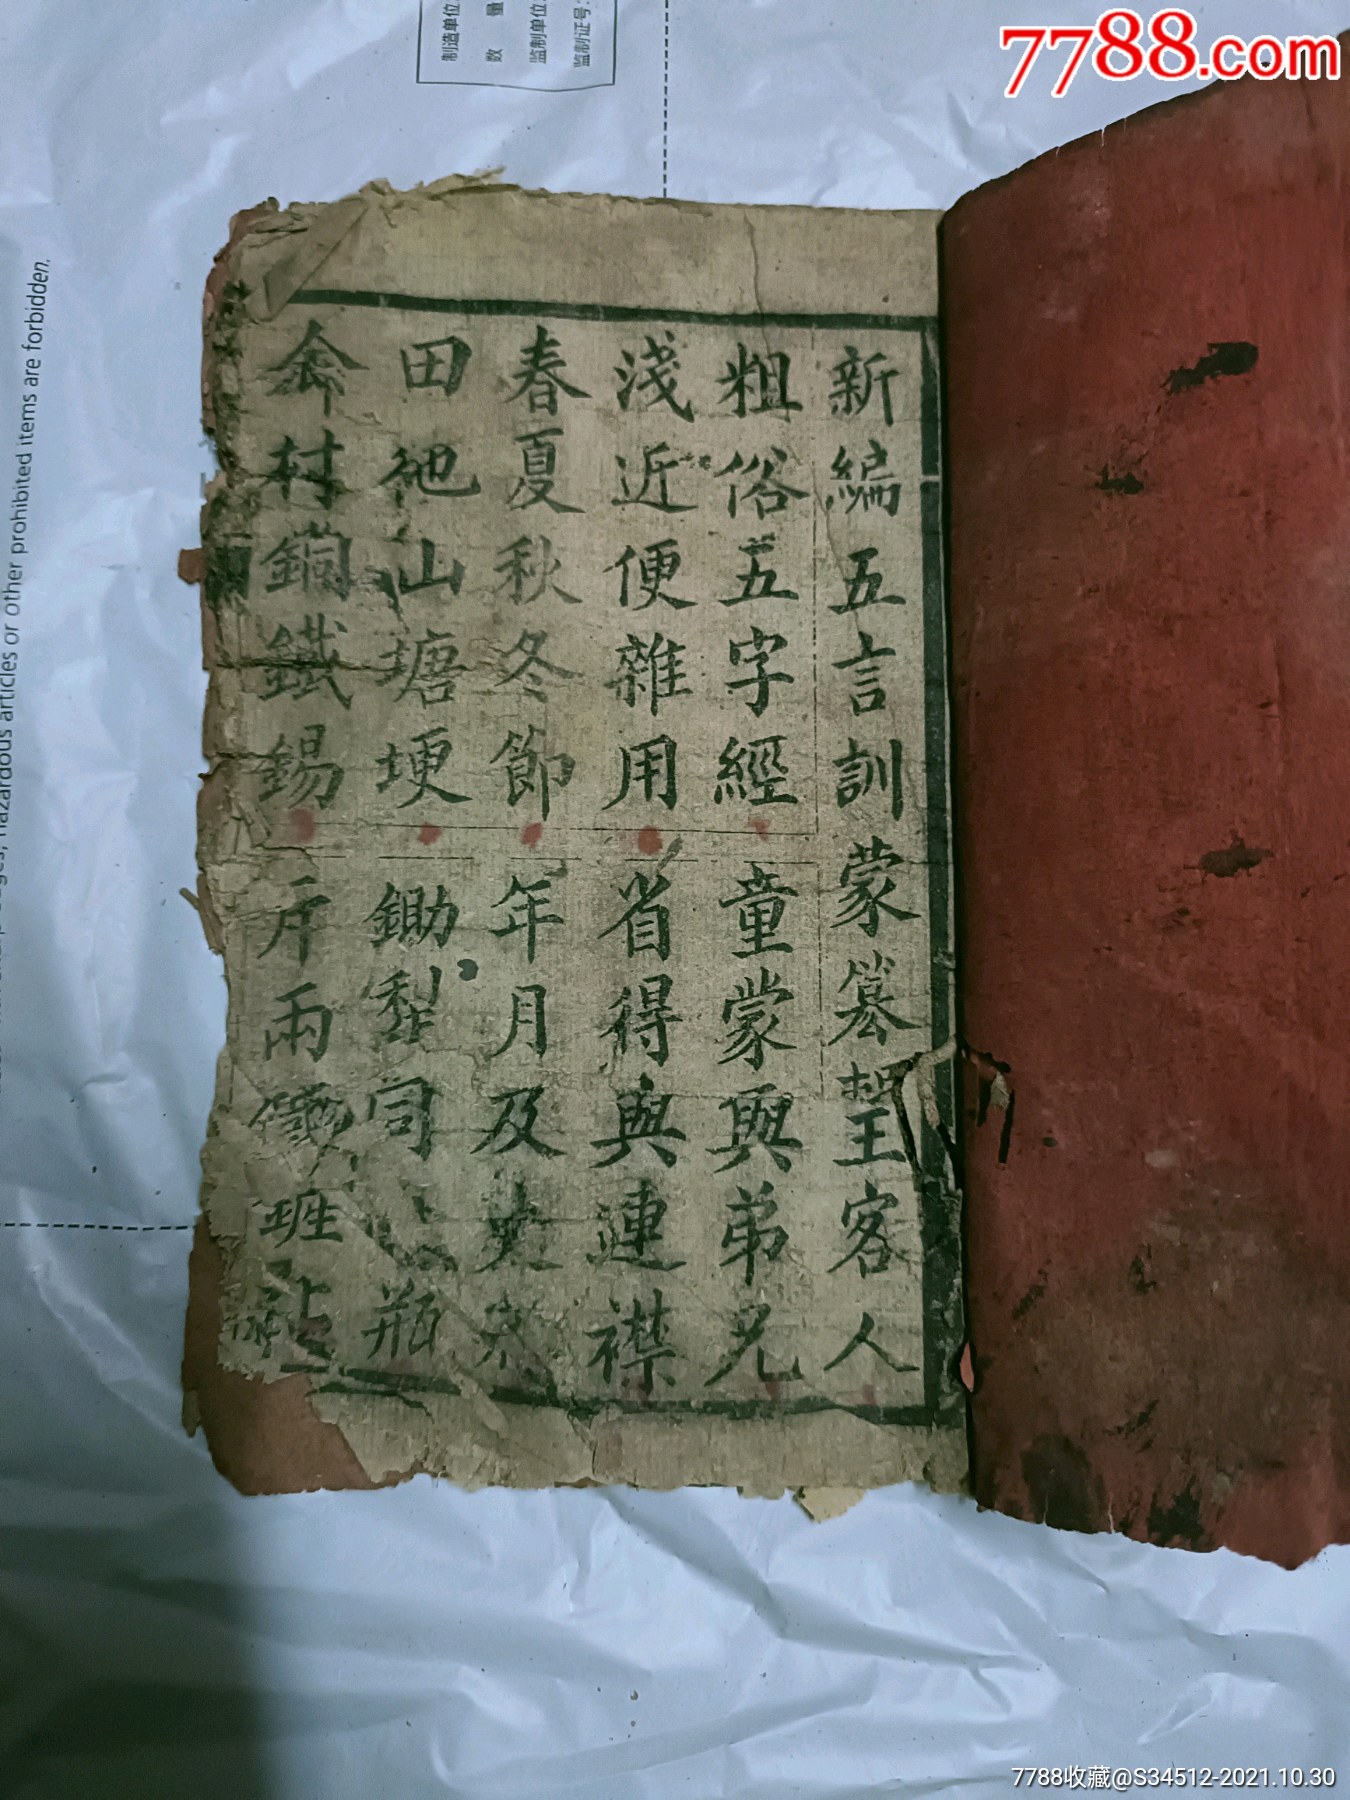 7788.com
制造单位:
数 量
监制单位:
监制证号:
hazardous articles or other prohibited items are forbidden.
新編五言訓蒙纂 王客人
粗俗五字經 童蒙與弟兄
淺近便雜用 省得與連襟
春夏秋冬節 年月及
田地山塘埂 鋤犁 瓶
村銅鐵錫 斤兩
7788收藏@S34512-2021.10.30